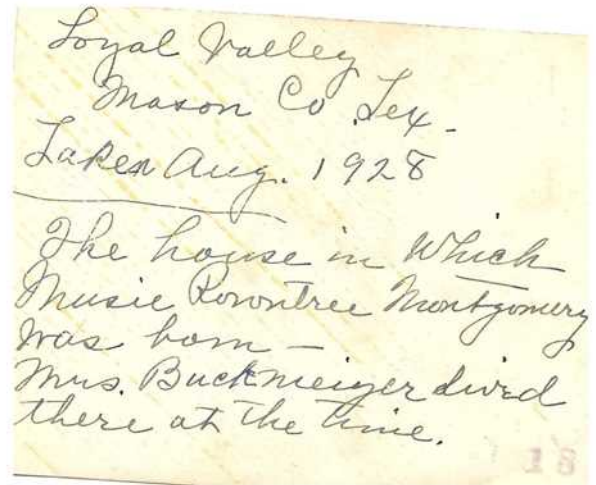 Loyal Valley
Mason Co. Tex -
Taken Aug. 1928
The house in Which
Musie Rowntree Montgomery
was born -
Mrs. Buckmeiyer lived
there at the time.
18